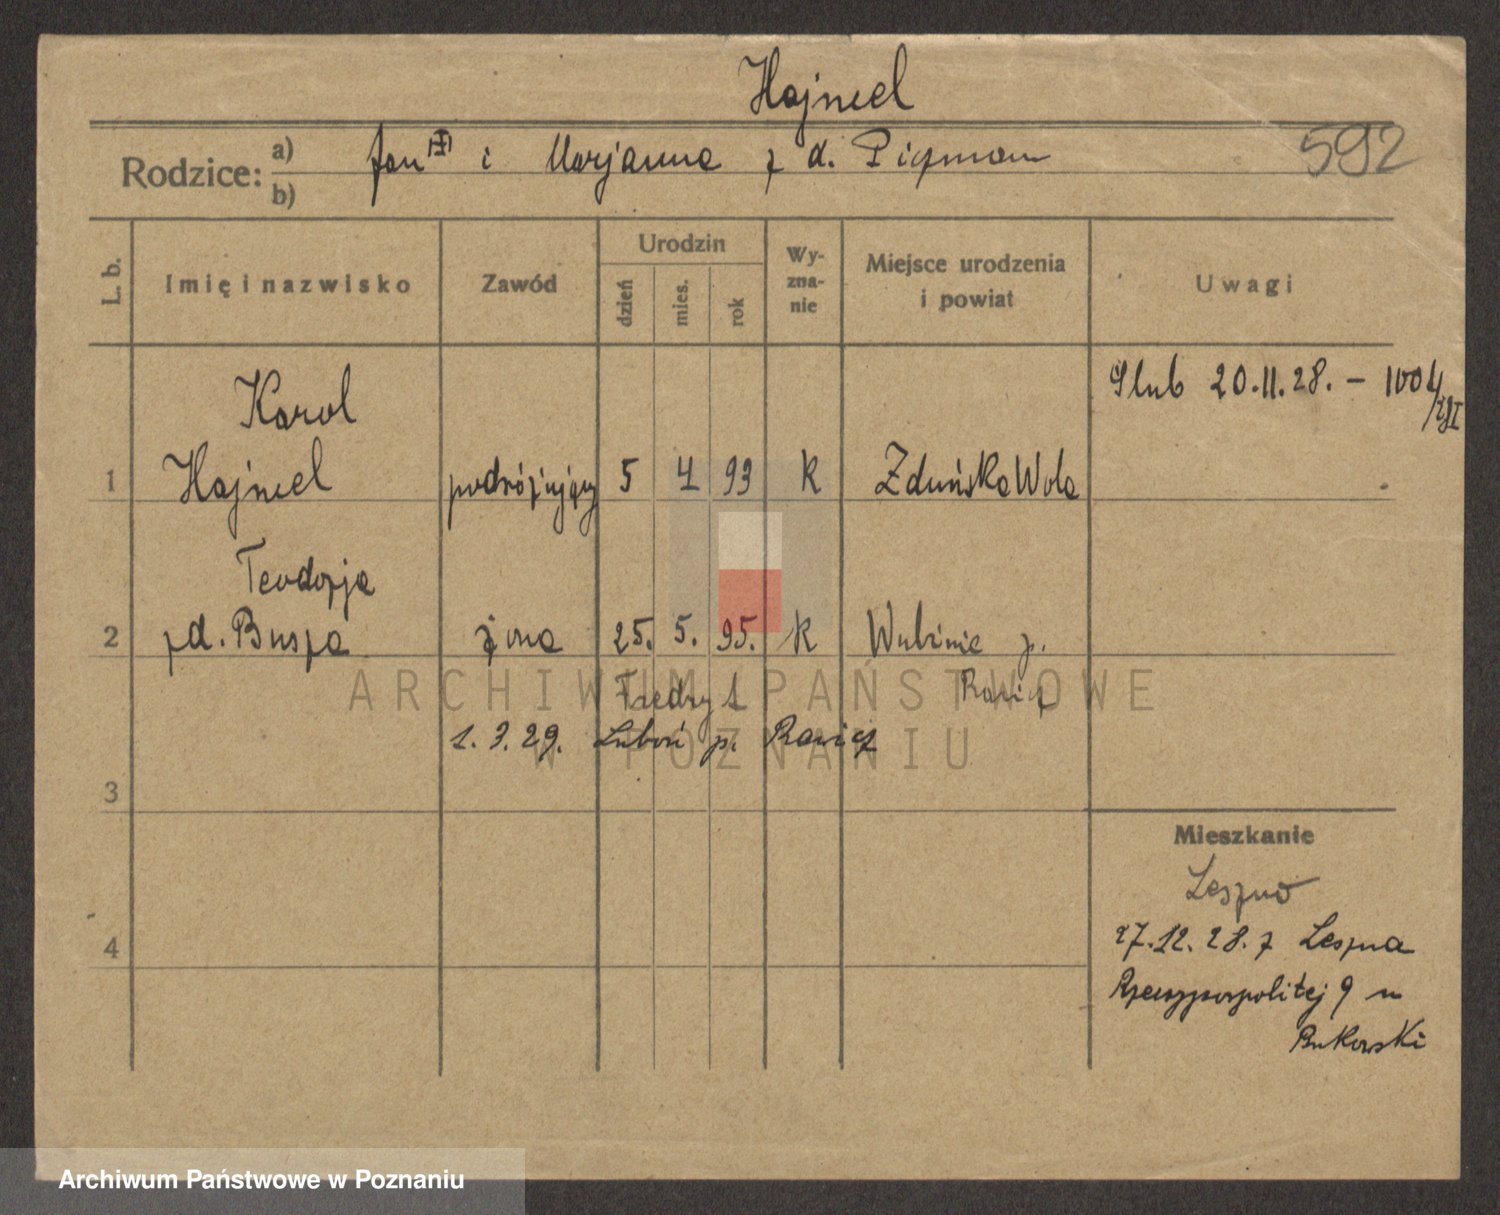 Hajmel
592
Rodzice: a) Jan i Marjanna z d.
b)
L. b. Imię i nazwisko Zawód Urodzin dzień mies. rok Wyznanie Miejsce urodzenia i powiat Uwagi
Ślub 20.11.28. –
Karol
1 Hajmel podróżujący 5 4 93 K Zduńska Wola
Teodozja
2 z d. Busza żona 25. 5. 95. K p.
Rawicz
Fredry 1
1.3.29. Luboń p. Rawicz
3
Mieszkanie
Leszno
27.12.28. z Leszna
4
Rzeczypospolitej 9 u
Bukowski
ARCHIWUM PAŃSTWOWE
W POZNANIU
Archiwum Państwowe w Poznaniu